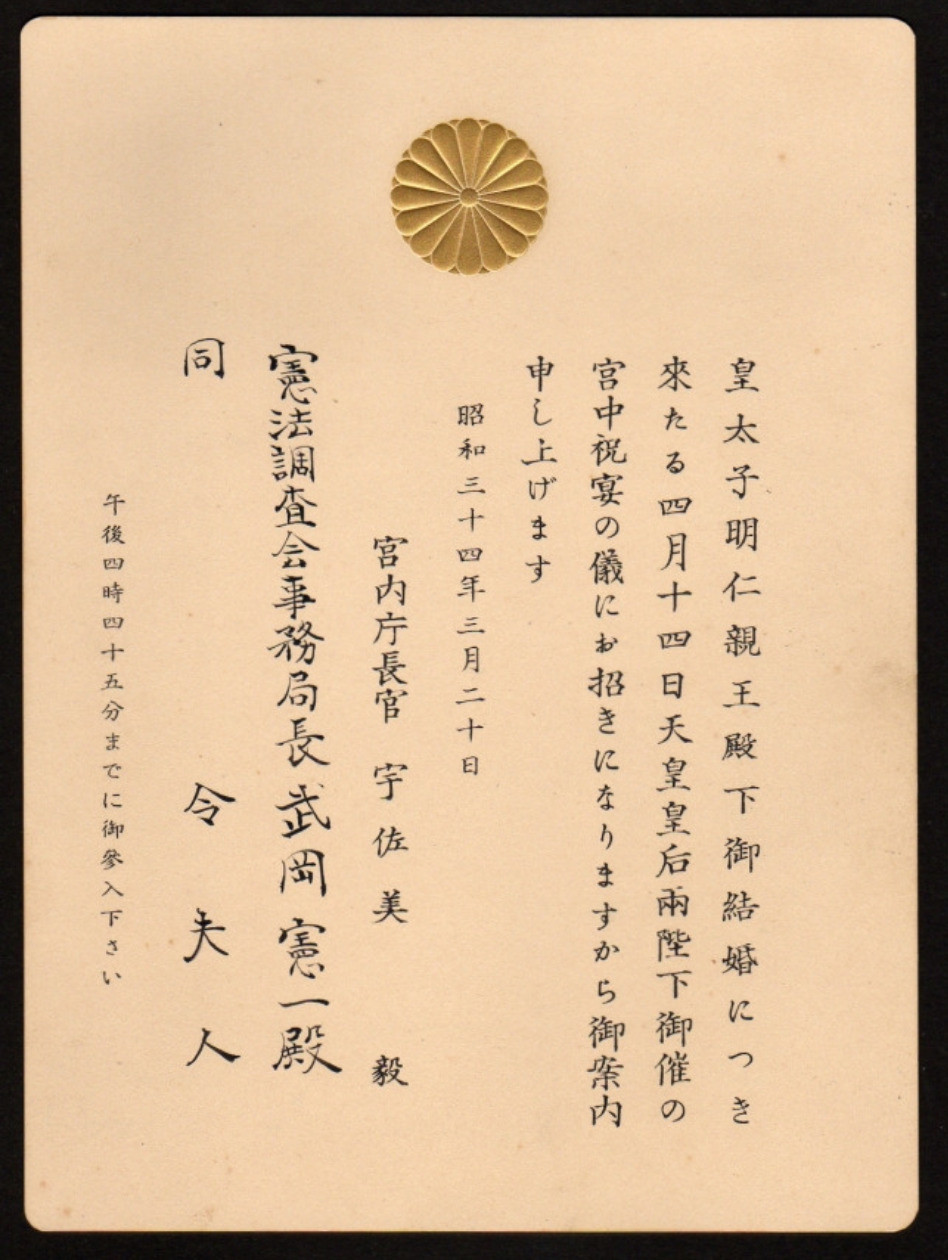 皇太子明仁親王殿下御結婚につき
來たる四月十四日天皇皇后兩陛下御催の
宮中祝宴の儀にお招きになりますから御案内
申し上げます
昭和三十四年三月二十日
宮内庁長官 宇佐美 毅
憲法調査会事務局長 武岡憲一殿
同 令夫人
午後四時四十五分までに御參入下さい